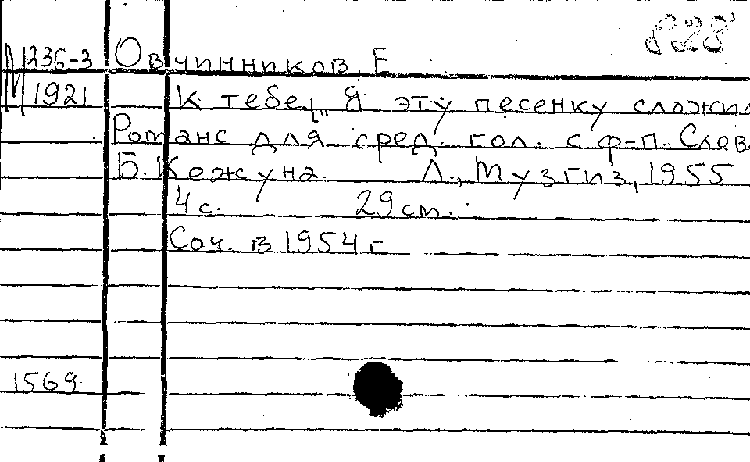 828
М236-3 Овчинников Е
1921 К тебе. „Я эту песенку сложил
Романс для сред. гол. с ф-п. Слов
Б. Кежуна. Л., Музгиз, 1955
4 с. 29 cm.
Соч. в 1954 г
1569